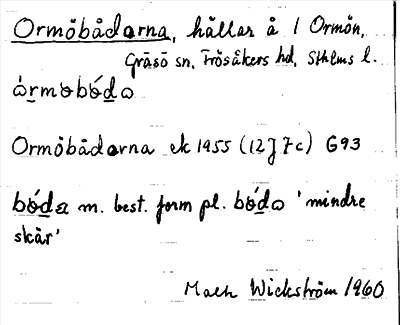 Ormöbådarna, hällar å / Ormön,
Gräsö sn, Frösåkers hd, Sthlms l.
Ormöbådarna ek 1955 (12J 7c) G93
m. best. form pl. 'mindre
skär'
Wickström 1960